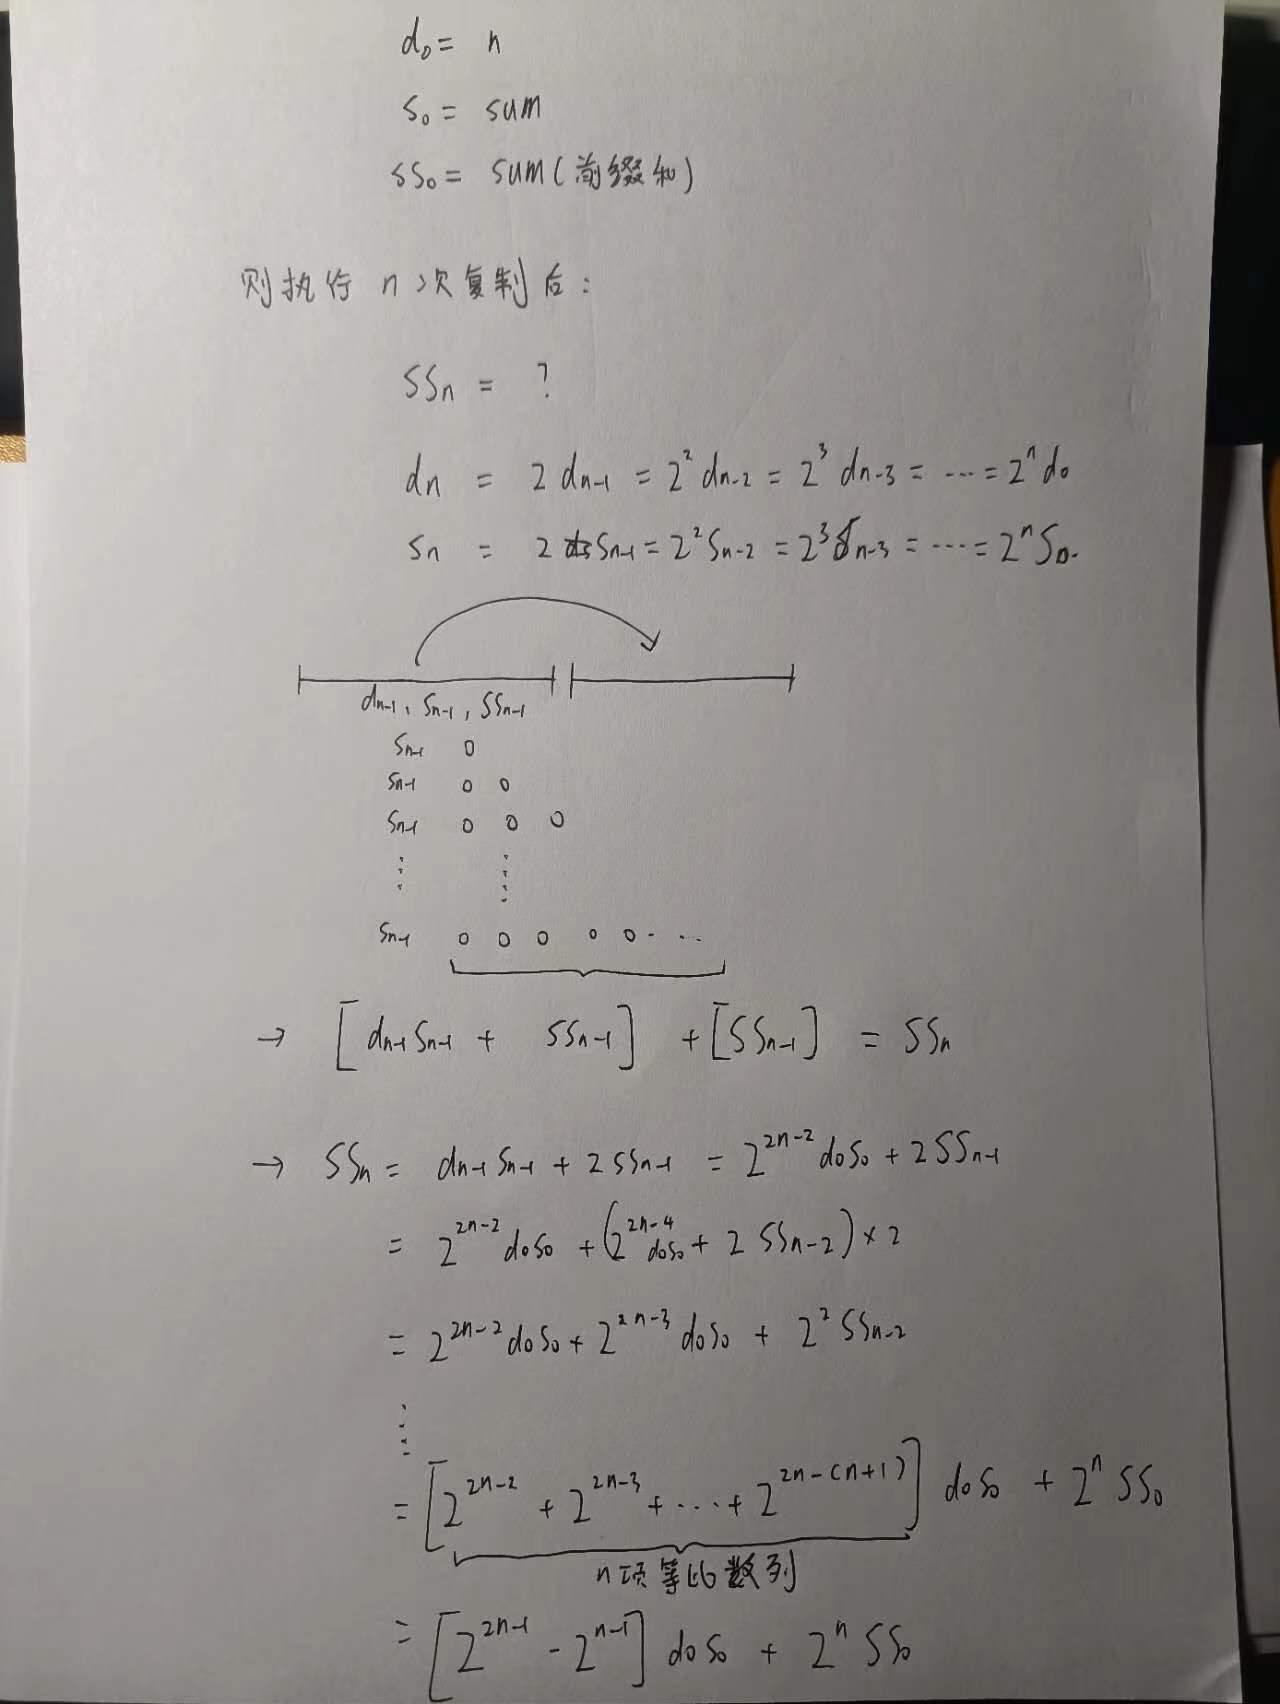 d₀ = n
s₀ = sum
ss₀ = sum(前缀和)
则执行 n 次复制后:
SSn = ?
dn = 2 dn-1 = 2² dn-2 = 2³ dn-3 = ⋯ = 2ⁿ d₀
Sn = 2 Sn-1 = 2² Sn-2 = 2³ Sn-3 = ⋯ = 2ⁿ S₀.
dn-1, Sn-1, SSn-1
Sn-1 o
Sn-1 o o
Sn-1 o o o
⋮ ⋮
Sn-1 o o o o o ⋯
→ [dn-1 Sn-1 + SSn-1] + [SSn-1] = SSn
→ SSn = dn-1 Sn-1 + 2 SSn-1 = 2^{2n-2} d₀S₀ + 2 SSn-1
= 2^{2n-2} d₀S₀ + (2^{2n-4} d₀S₀ + 2 SSn-2) × 2
= 2^{2n-2} d₀S₀ + 2^{2n-3} d₀S₀ + 2² SSn-2
⋮
= [2^{2n-2} + 2^{2n-3} + ⋯ + 2^{2n-(n+1)}] d₀S₀ + 2ⁿ SS₀
n项等比数列
= [2^{2n-1} - 2^{n-1}] d₀S₀ + 2ⁿ SS₀